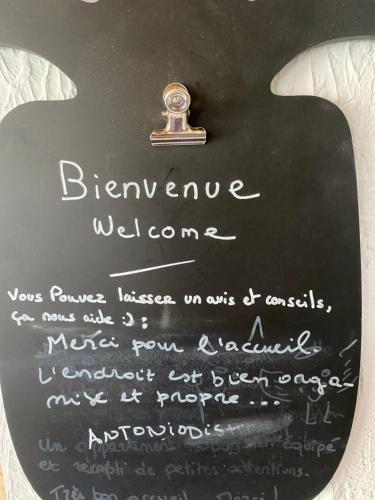 Bienvenue
Welcome
Vous Pouvez laisser un avis et conseils,
ça nous aide :) :
Merci pour l'accueil.
L'endroit est bien orga-
nisé et propre ...
ANTONIO
Un appartement équipé
et rempli de petites attentions.
Très bon accueil. Merci!